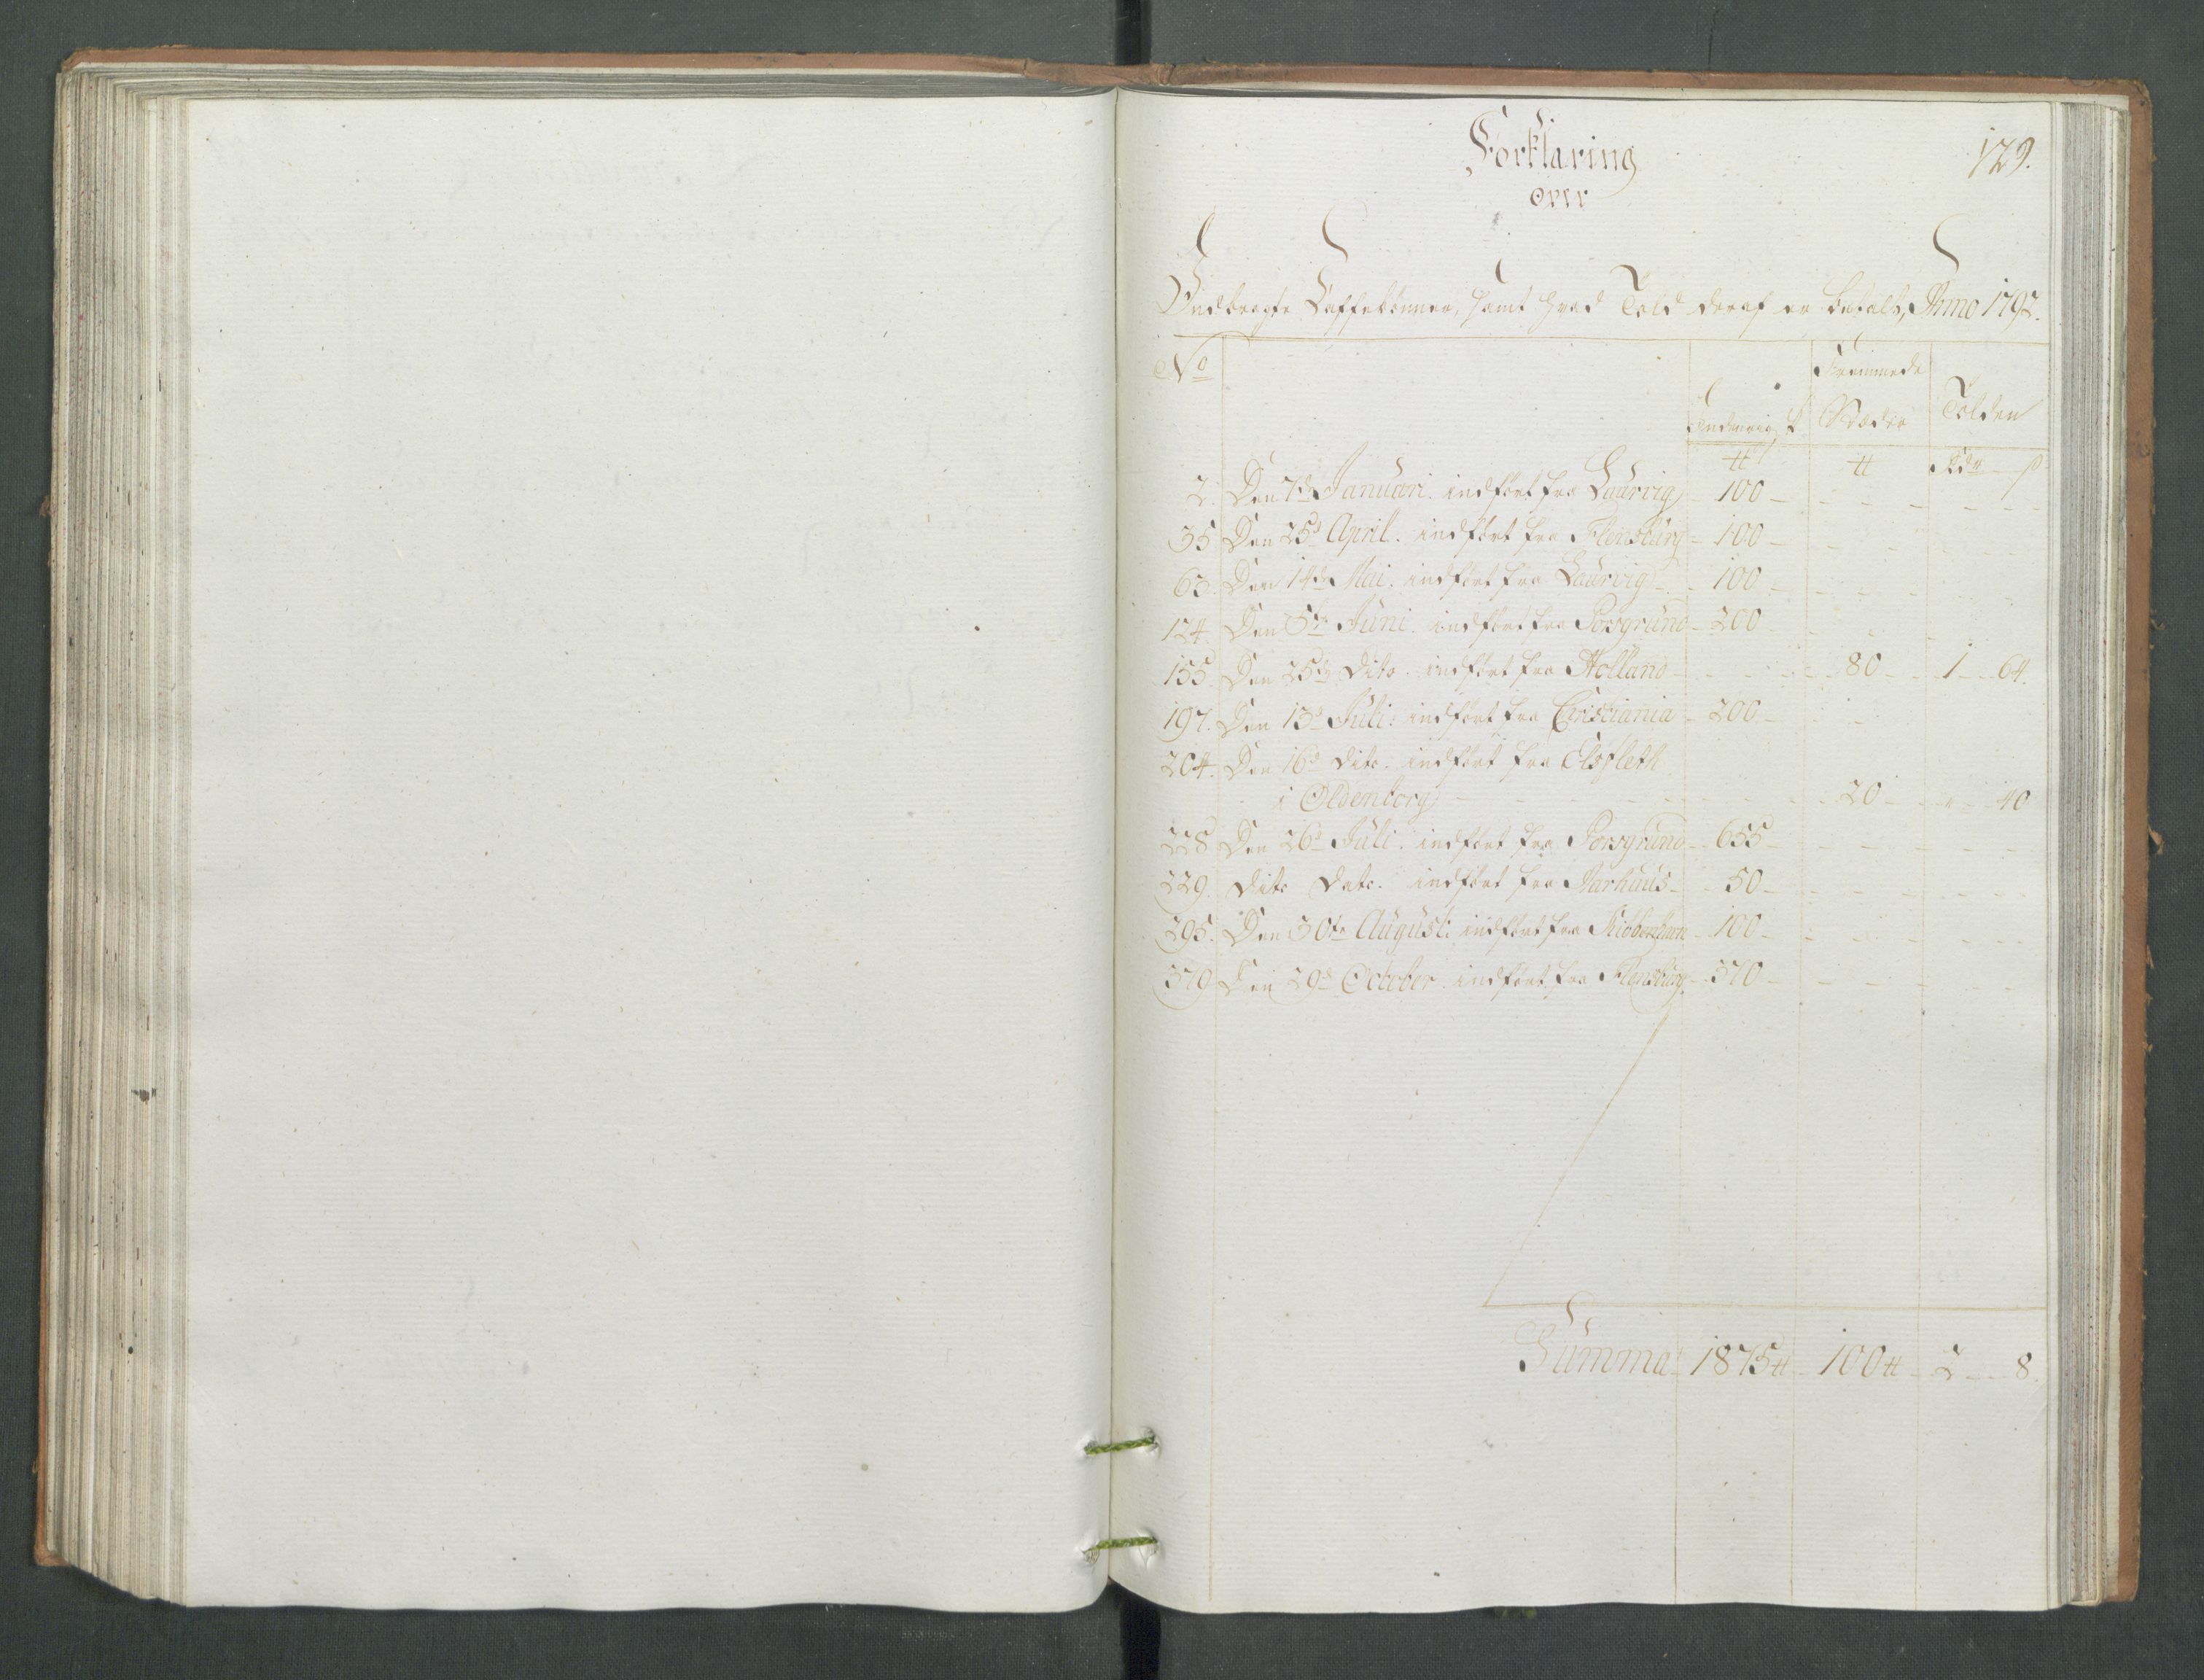 129.
Forklaring
over
Indbragte Caffebönner, samt hvad Told deraf er betalt, Anno 1792.
No Indenrigs Fremmede Stæder Tolden
℔ ℔ Rdr ß
2. Den 7de Januari. indført fra Laurvig - 100 -
35 Den 25d April. indført fra Flensburg - 100 -
63. Den 14de Mai. indført fra Laurvig - 100 -
124. Den 5te Juni. indført fra Porsgrund - 200
155. Den 25de Dito. indført fra Holland - 80 - 1 - 64.
197. Den 13d Juli. indført fra Cristiania - 200 -
204. Den 16d Dito. indført fra Elsfleth
i Oldenborg - 20 - " - 40
228 Den 26d Juli. indført fra Porsgrund - 655 -
229. Dito Dato. indført fra Aarhuus - 50 -
295. Den 30te August. indført fra Kiöbenhavn - 100 -
379 Den 29d October. indført fra Flensburg - 370 -
Summa - 1875 ℔ - 100 ℔ - 2 - 8.